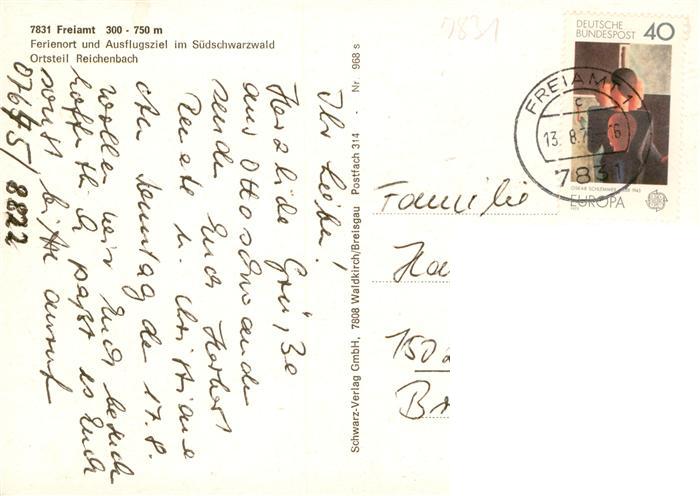 7831 Freiamt 300 - 750 m
Ferienort und Ausflugsziel im Südschwarzwald
Ortsteil Reichenbach
Ihr Lieben!
Herzliche Grüße
aus Ottoschwanden
senden Euch Herbert
Renate u. Christiane
Am Sonntag den 17.8.
wollen wir Euch besuchen
hoffentlich paßt es Euch
sonst bitte anruf
07645/8822
Schwarz-Verlag GmbH, 7808 Waldkirch/Breisgau Postfach 314 - Nr. 968 s
7831
DEUTSCHE
BUNDESPOST 40
OSKAR SCHLEMMER
EUROPA
FREIAMT 1
c
13. 8.
7831
Familie
Ha
150
B